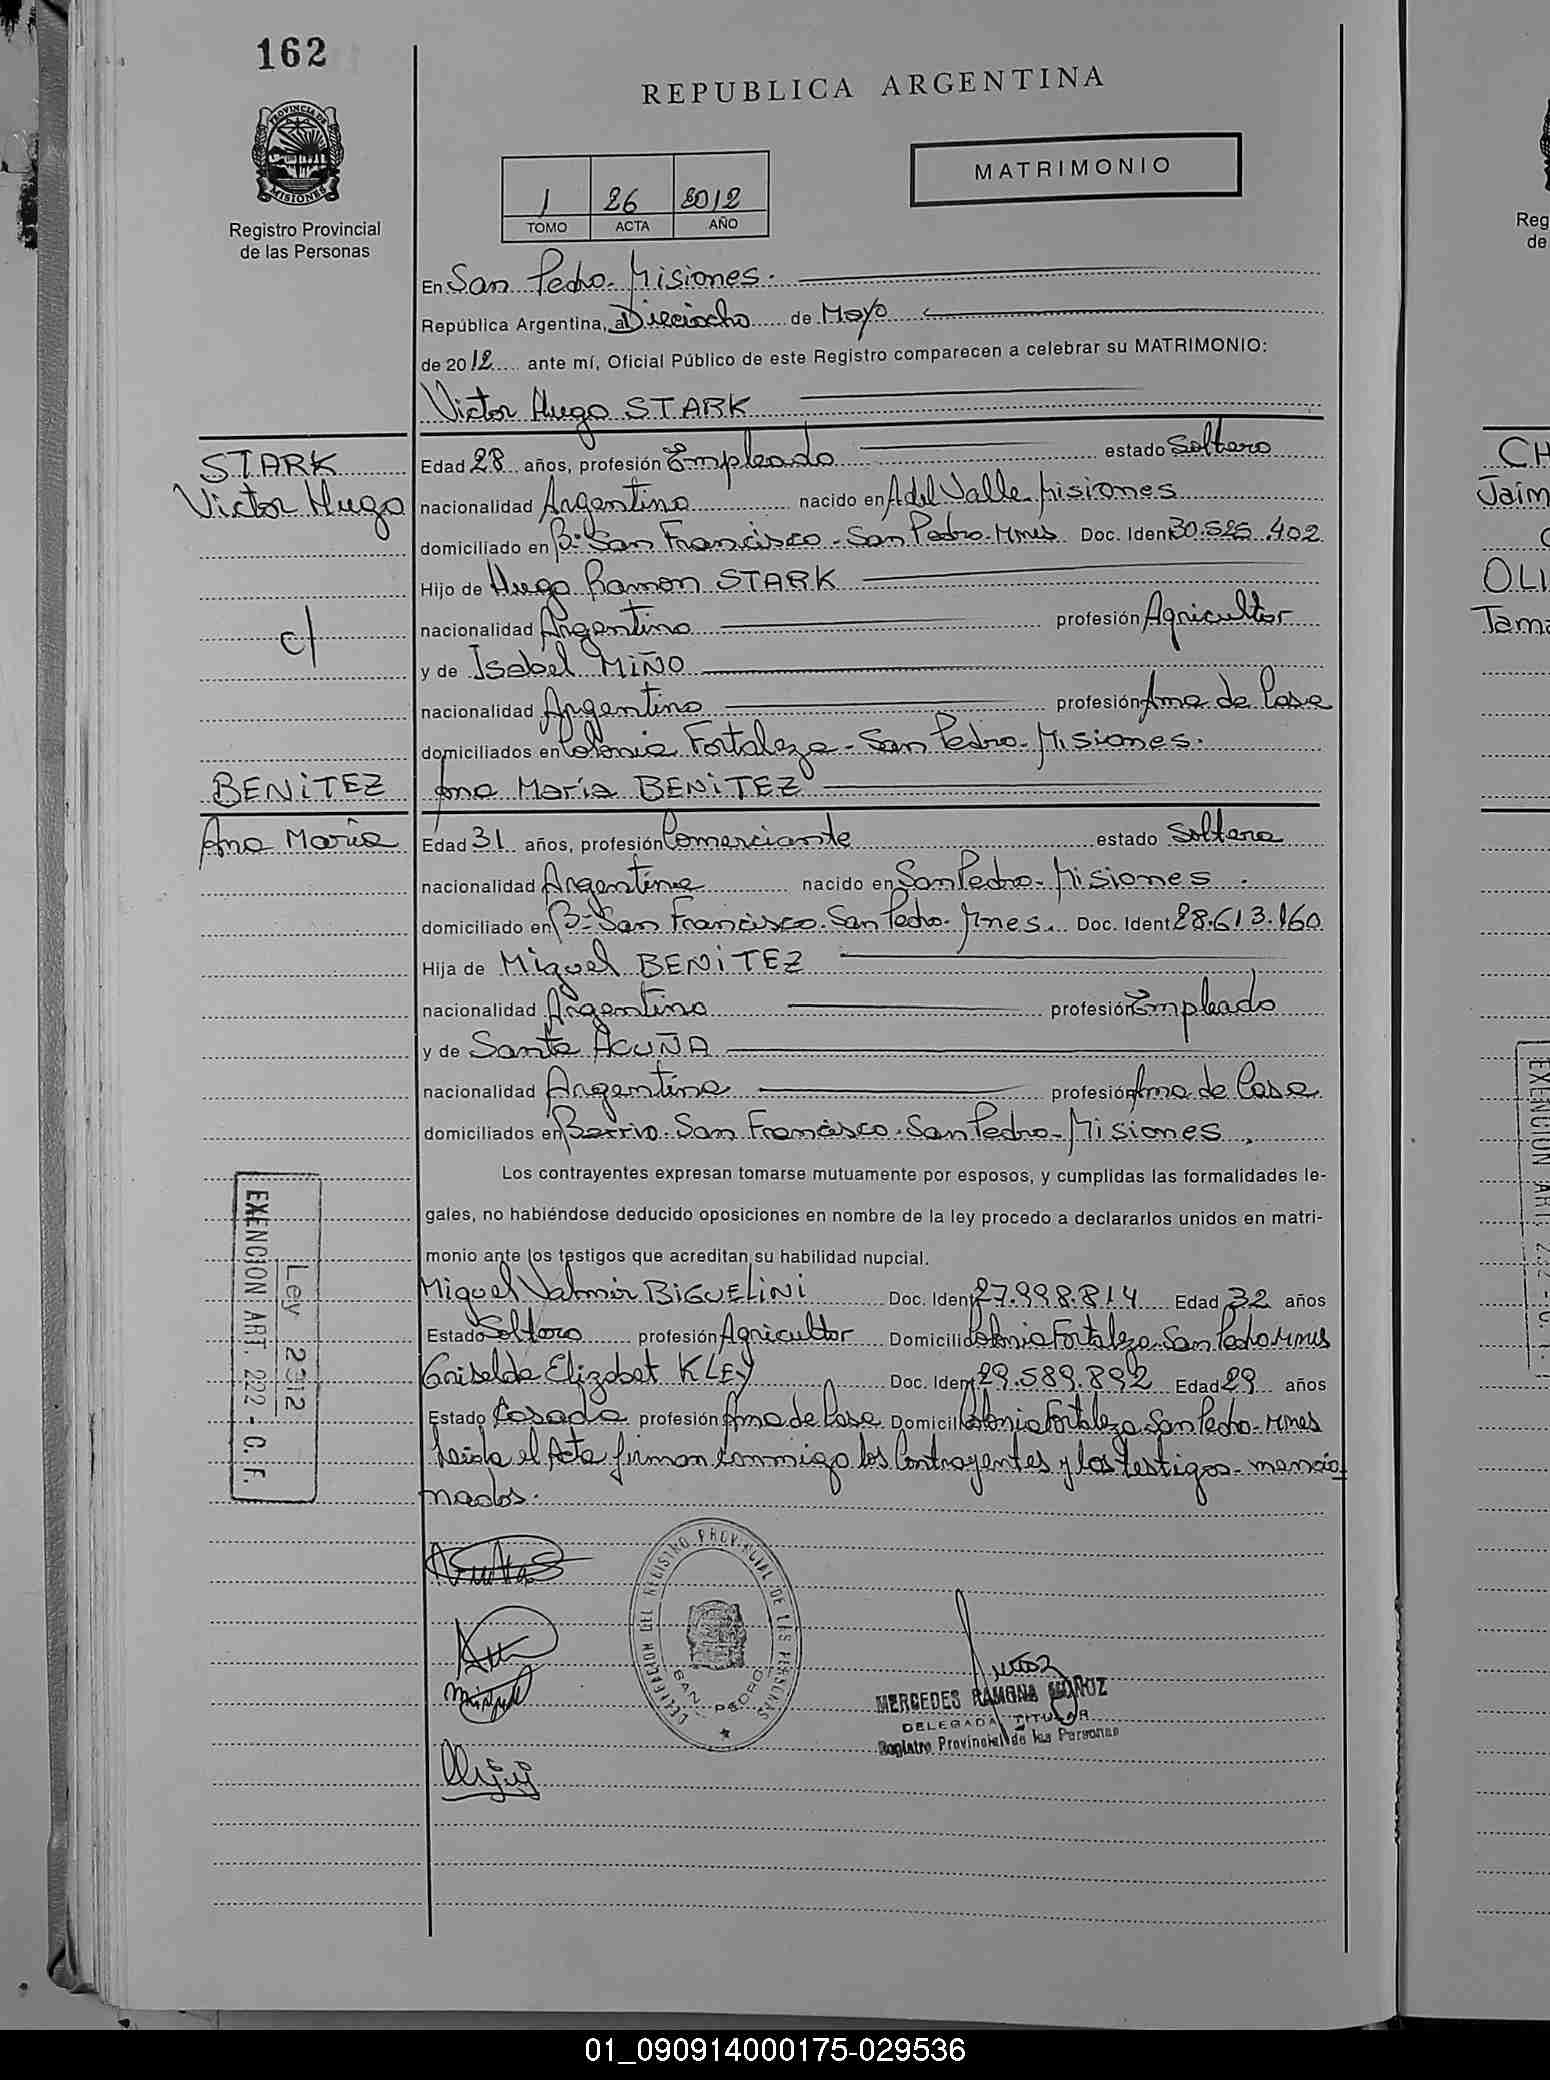 162
REPUBLICA ARGENTINA
PROVINCIA DE MISIONES
Registro Provincial
de las Personas
1 26 2012
TOMO ACTA AÑO
MATRIMONIO
En San Pedro - Misiones.
República Argentina, a Dieciocho de Mayo
de 2012 ante mí, Oficial Público de este Registro comparecen a celebrar su MATRIMONIO:
Victor Hugo STARK
STARK
Victor Hugo
c/
BENITEZ
Ana María
Edad 28 años, profesión Empleado estado Soltero
nacionalidad Argentino nacido en A del Valle - Misiones
domiciliado en Bº San Francisco - San Pedro - Mnes Doc. Ident 30.525.402
Hijo de Hugo Ramon STARK
nacionalidad Argentino profesión Agricultor
y de Isabel MIÑO
nacionalidad Argentina profesión Ama de Casa
domiciliados en Colonia Fortaleza - San Pedro - Misiones.
Ana María BENITEZ
Edad 31 años, profesión Comerciante estado Soltera
nacionalidad Argentina nacido en San Pedro - Misiones.
domiciliado en Bº San Francisco - San Pedro - Mnes. Doc. Ident 28.613.160
Hija de Miguel BENITEZ
nacionalidad Argentino profesión Empleado
y de Santa ACUÑA
nacionalidad Argentina profesión Ama de Casa
domiciliados en Barrio San Francisco - San Pedro - Misiones
Los contrayentes expresan tomarse mutuamente por esposos, y cumplidas las formalidades le-
gales, no habiéndose deducido oposiciones en nombre de la ley procedo a declararlos unidos en matri-
monio ante los testigos que acreditan su habilidad nupcial.
Miguel Valmir BIGUELINI Doc. Ident 27.998.814 Edad 32 años
Estado Soltero profesión Agricultor Domicilio Colonia Fortaleza - San Pedro Mnes
Griselda Elizabet KLEY Doc. Ident 29.589.892 Edad 29 años
Estado Casada profesión Ama de Casa Domicilio Colonia Fortaleza San Pedro - Mnes
Leida el Acta firman conmigo los Contrayentes y los testigos - mencio-
nados.
Ley 2312
EXENCION ART. 222 - C. F.
DELEGACION DEL REGISTRO PROVINCIAL DE LAS PERSONAS
SAN PEDRO
MERCEDES RAMONA MUÑOZ
DELEGADA TITULAR
Registro Provincial de las Personas
Reg
de
CH
Jaim
OLI
Tama
EXENCION ART. 222 - C. F.
01_090914000175-029536